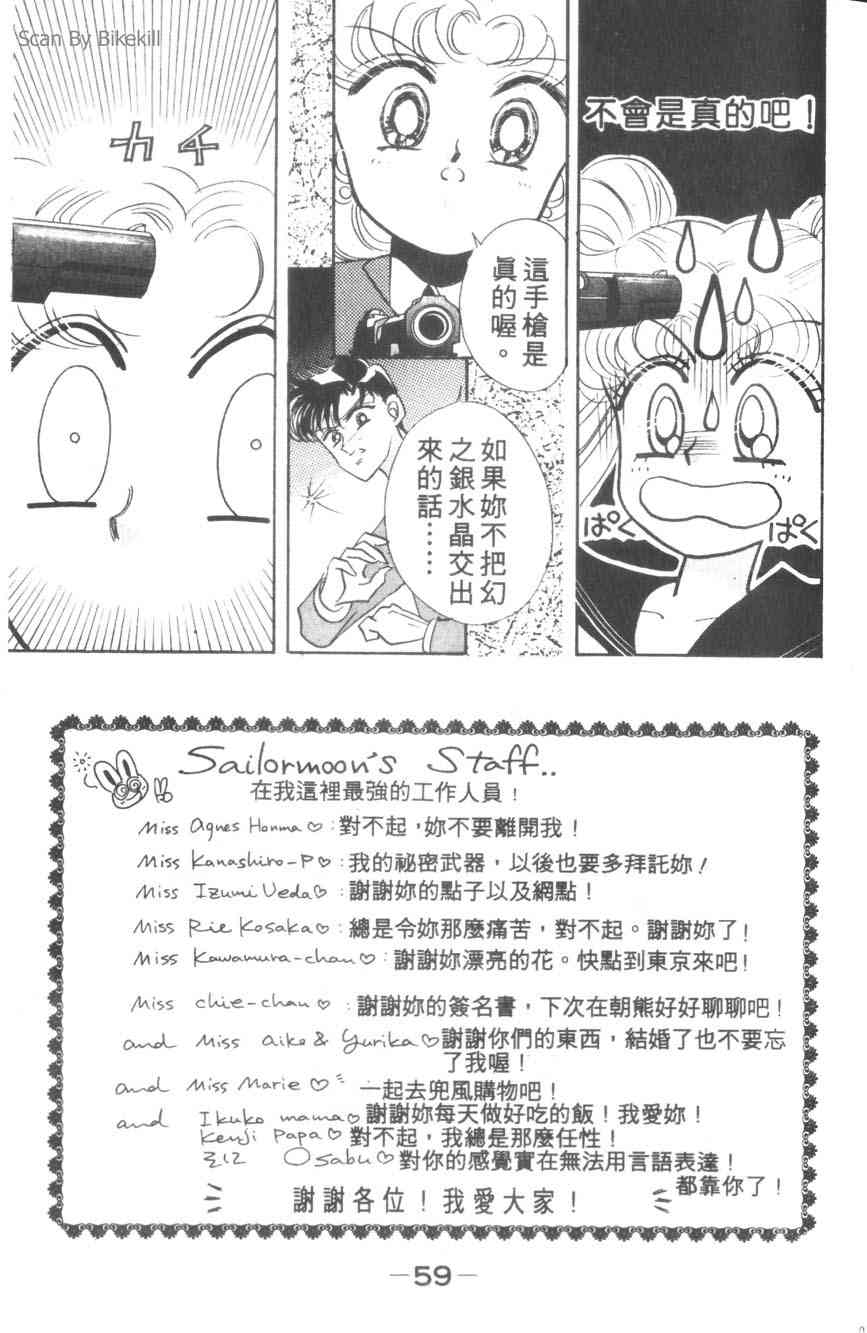 Scan By Bikekill
不會是真的吧！
ぱく
ぱく
這手槍是
眞的喔。
如果妳不把幻
之銀水晶交出
來的話……
カチ
Sailormoon's Staff..
在我這裡最強的工作人員！
Miss Agnes Honma♡：對不起，妳不要離開我！
Miss Kanashiro-P♡：我的祕密武器，以後也要多拜託妳！
Miss Izumi Ueda♡：謝謝妳的點子以及網點！
Miss Rie Kosaka♡：總是令妳那麼痛苦，對不起。謝謝妳了！
Miss Kawamura-chan♡：謝謝妳漂亮的花。快點到東京來吧！
Miss chie-chan♡：謝謝妳的簽名書，下次在朝熊好好聊聊吧！
and Miss Aiko & Yurika♡謝謝你們的東西，結婚了也不要忘
了我喔！
and Miss Marie♡一起去兜風購物吧！
and Ikuko mama♡謝謝妳每天做好吃的飯！我愛妳！
Kenji Papa♡對不起，我總是那麼任性！
Osabu♡對你的感覺實在無法用言語表達！
都靠你了！
謝謝各位！我愛大家！
—59—